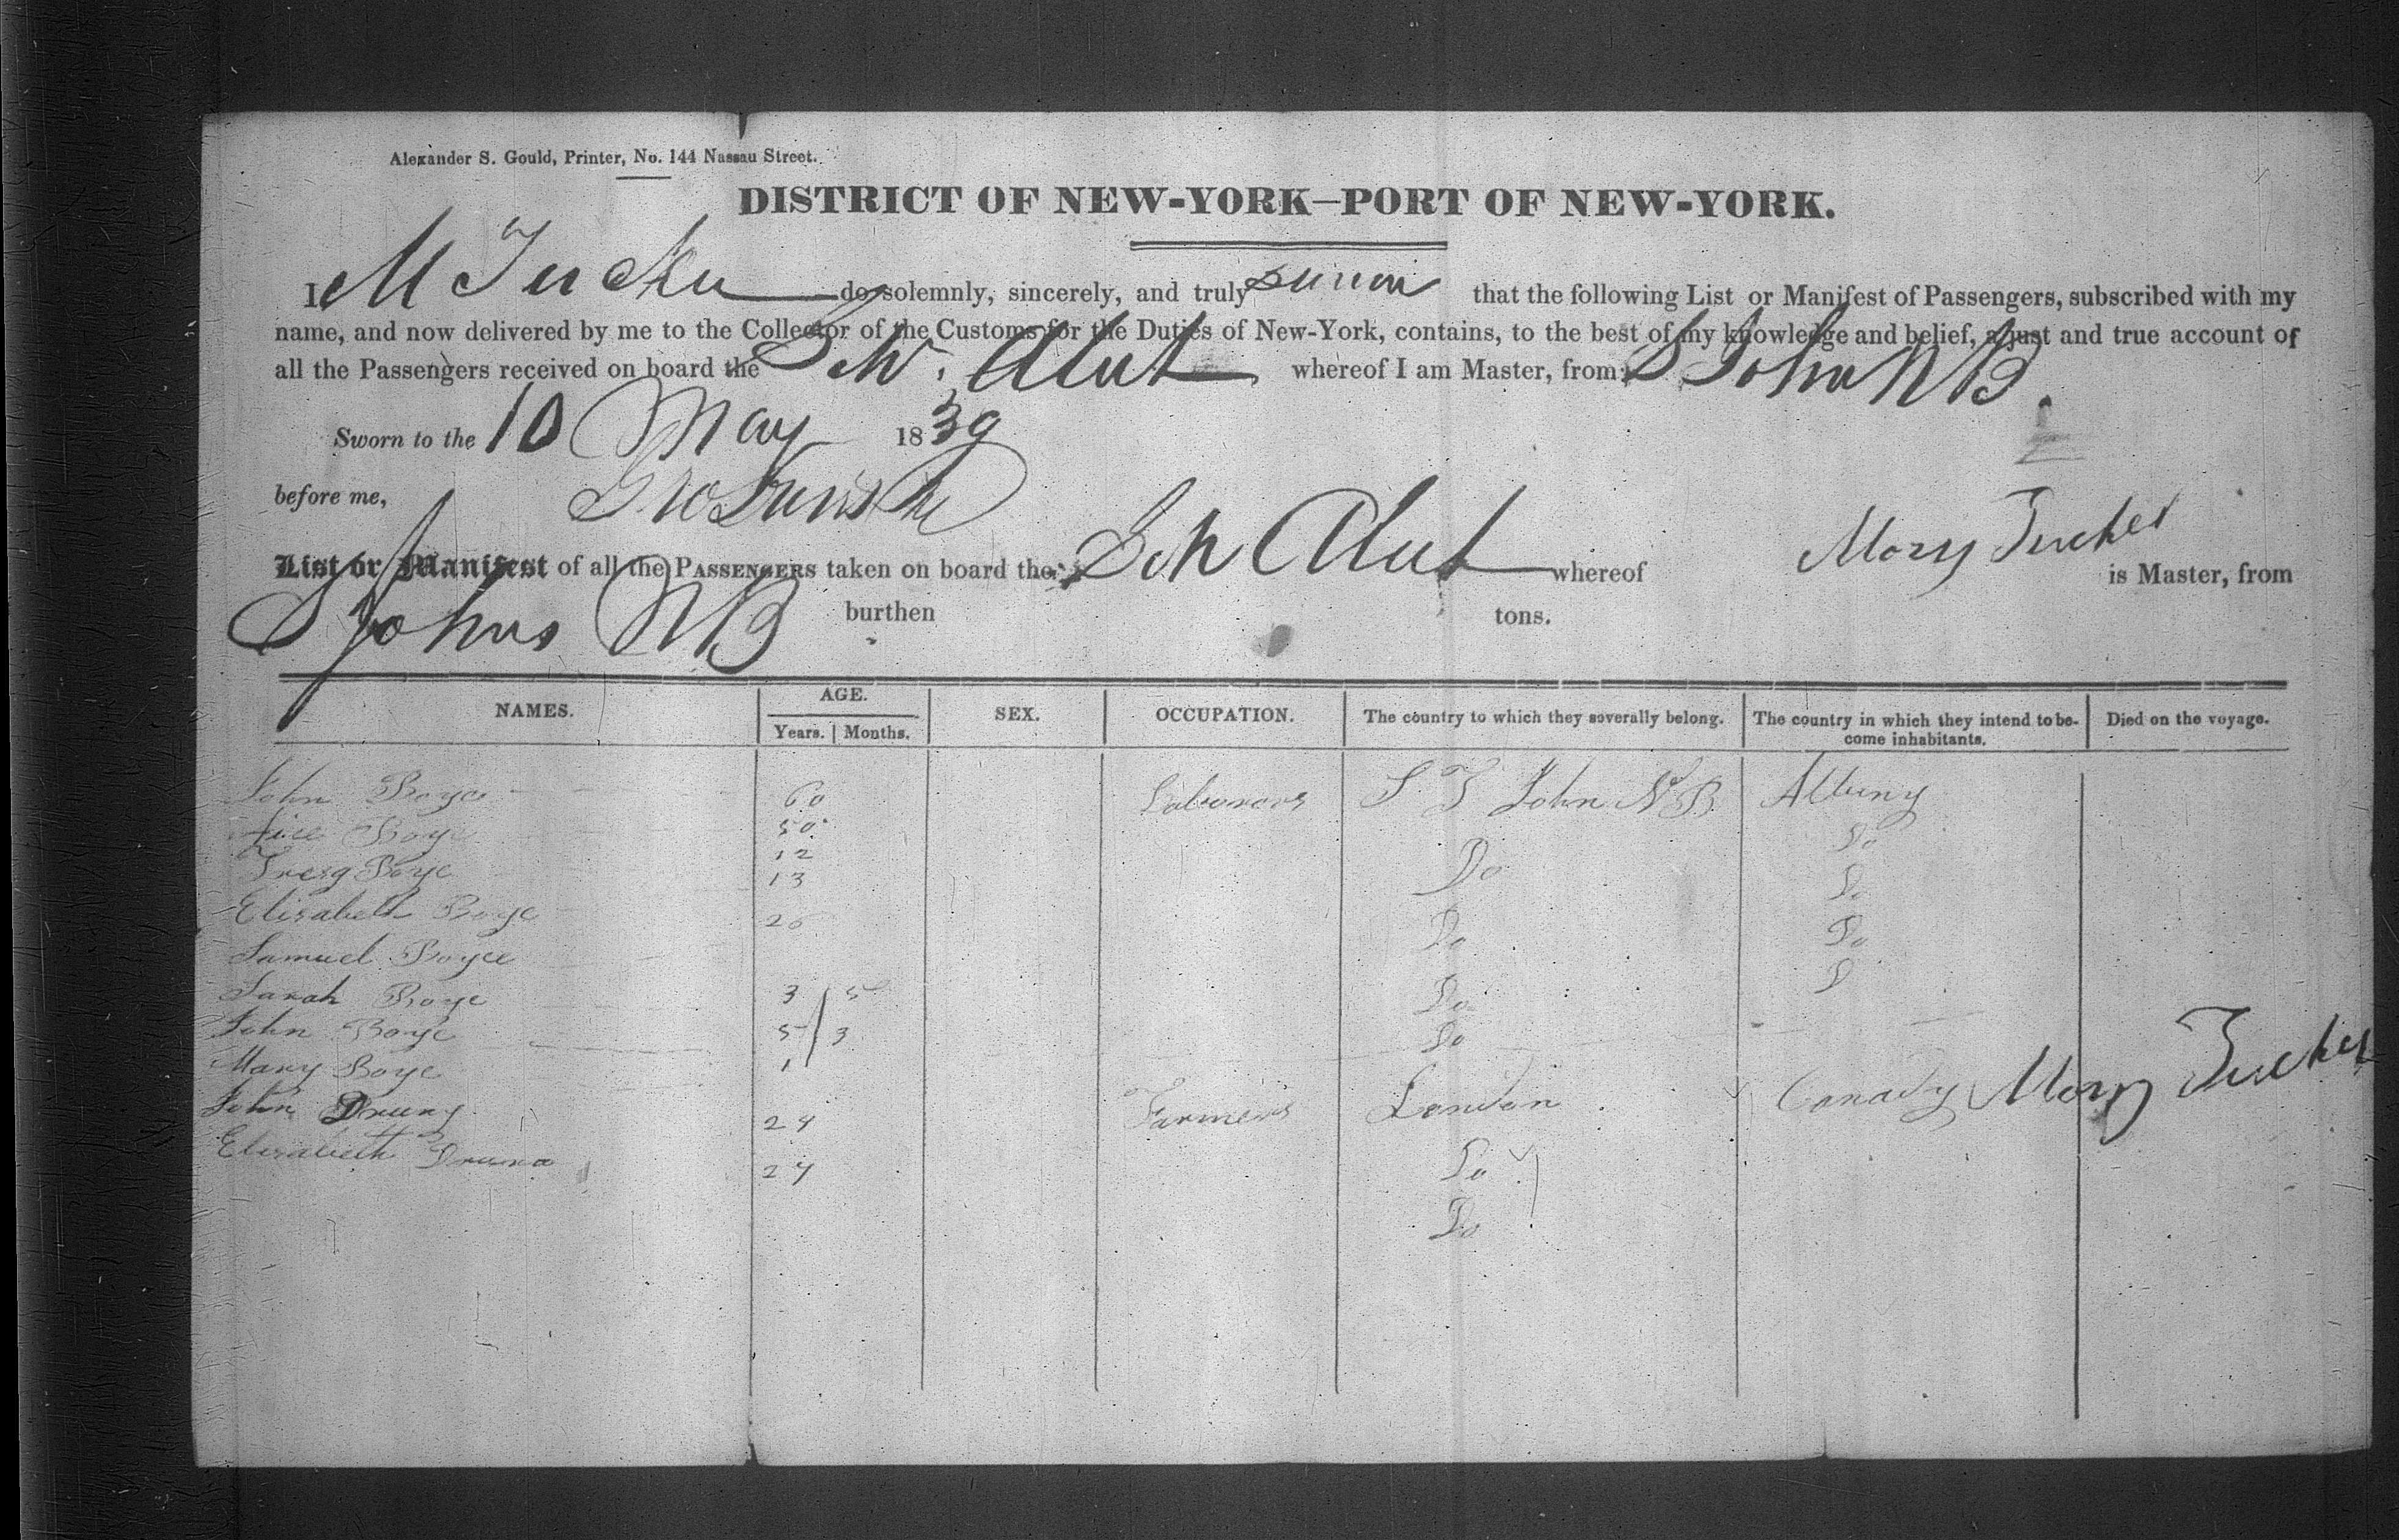 Alexander S. Gould, Printer, No. 144 Nassau Street.
DISTRICT OF NEW-YORK—PORT OF NEW-YORK.
I M Tucker do solemnly, sincerely, and truly that the following List or Manifest of Passengers, subscribed with my
name, and now delivered by me to the Collector of the Customs for the Duties of New-York, contains, to the best of my knowledge and belief, a just and true account of
all the Passengers received on board the Sch. Alert whereof I am Master, from St John NB.
Sworn to the 10 May 1839
before me,
List or Manifest of all the PASSENGERS taken on board the Sch Alert whereof Mory Tucker is Master, from
St Johns NB burthen tons.
NAMES. AGE. SEX. OCCUPATION. The country to which they severally belong. The country in which they intend to be- Died on the voyage.
Years. Months. come inhabitants.
John Boyce 60 Labourors S T John N B Albuny
Boye 50 Do
Boye 12 Do Do
13
Elisabeth Boye 26 Do Do
Samuel Boyce D
Sarah Boye 3 5 Do
John Boye 5 3 Do
Mary Boye 1
John Drury 24 Farmers London Canady Mory Tucker
Elizabeth 24 Do
Do